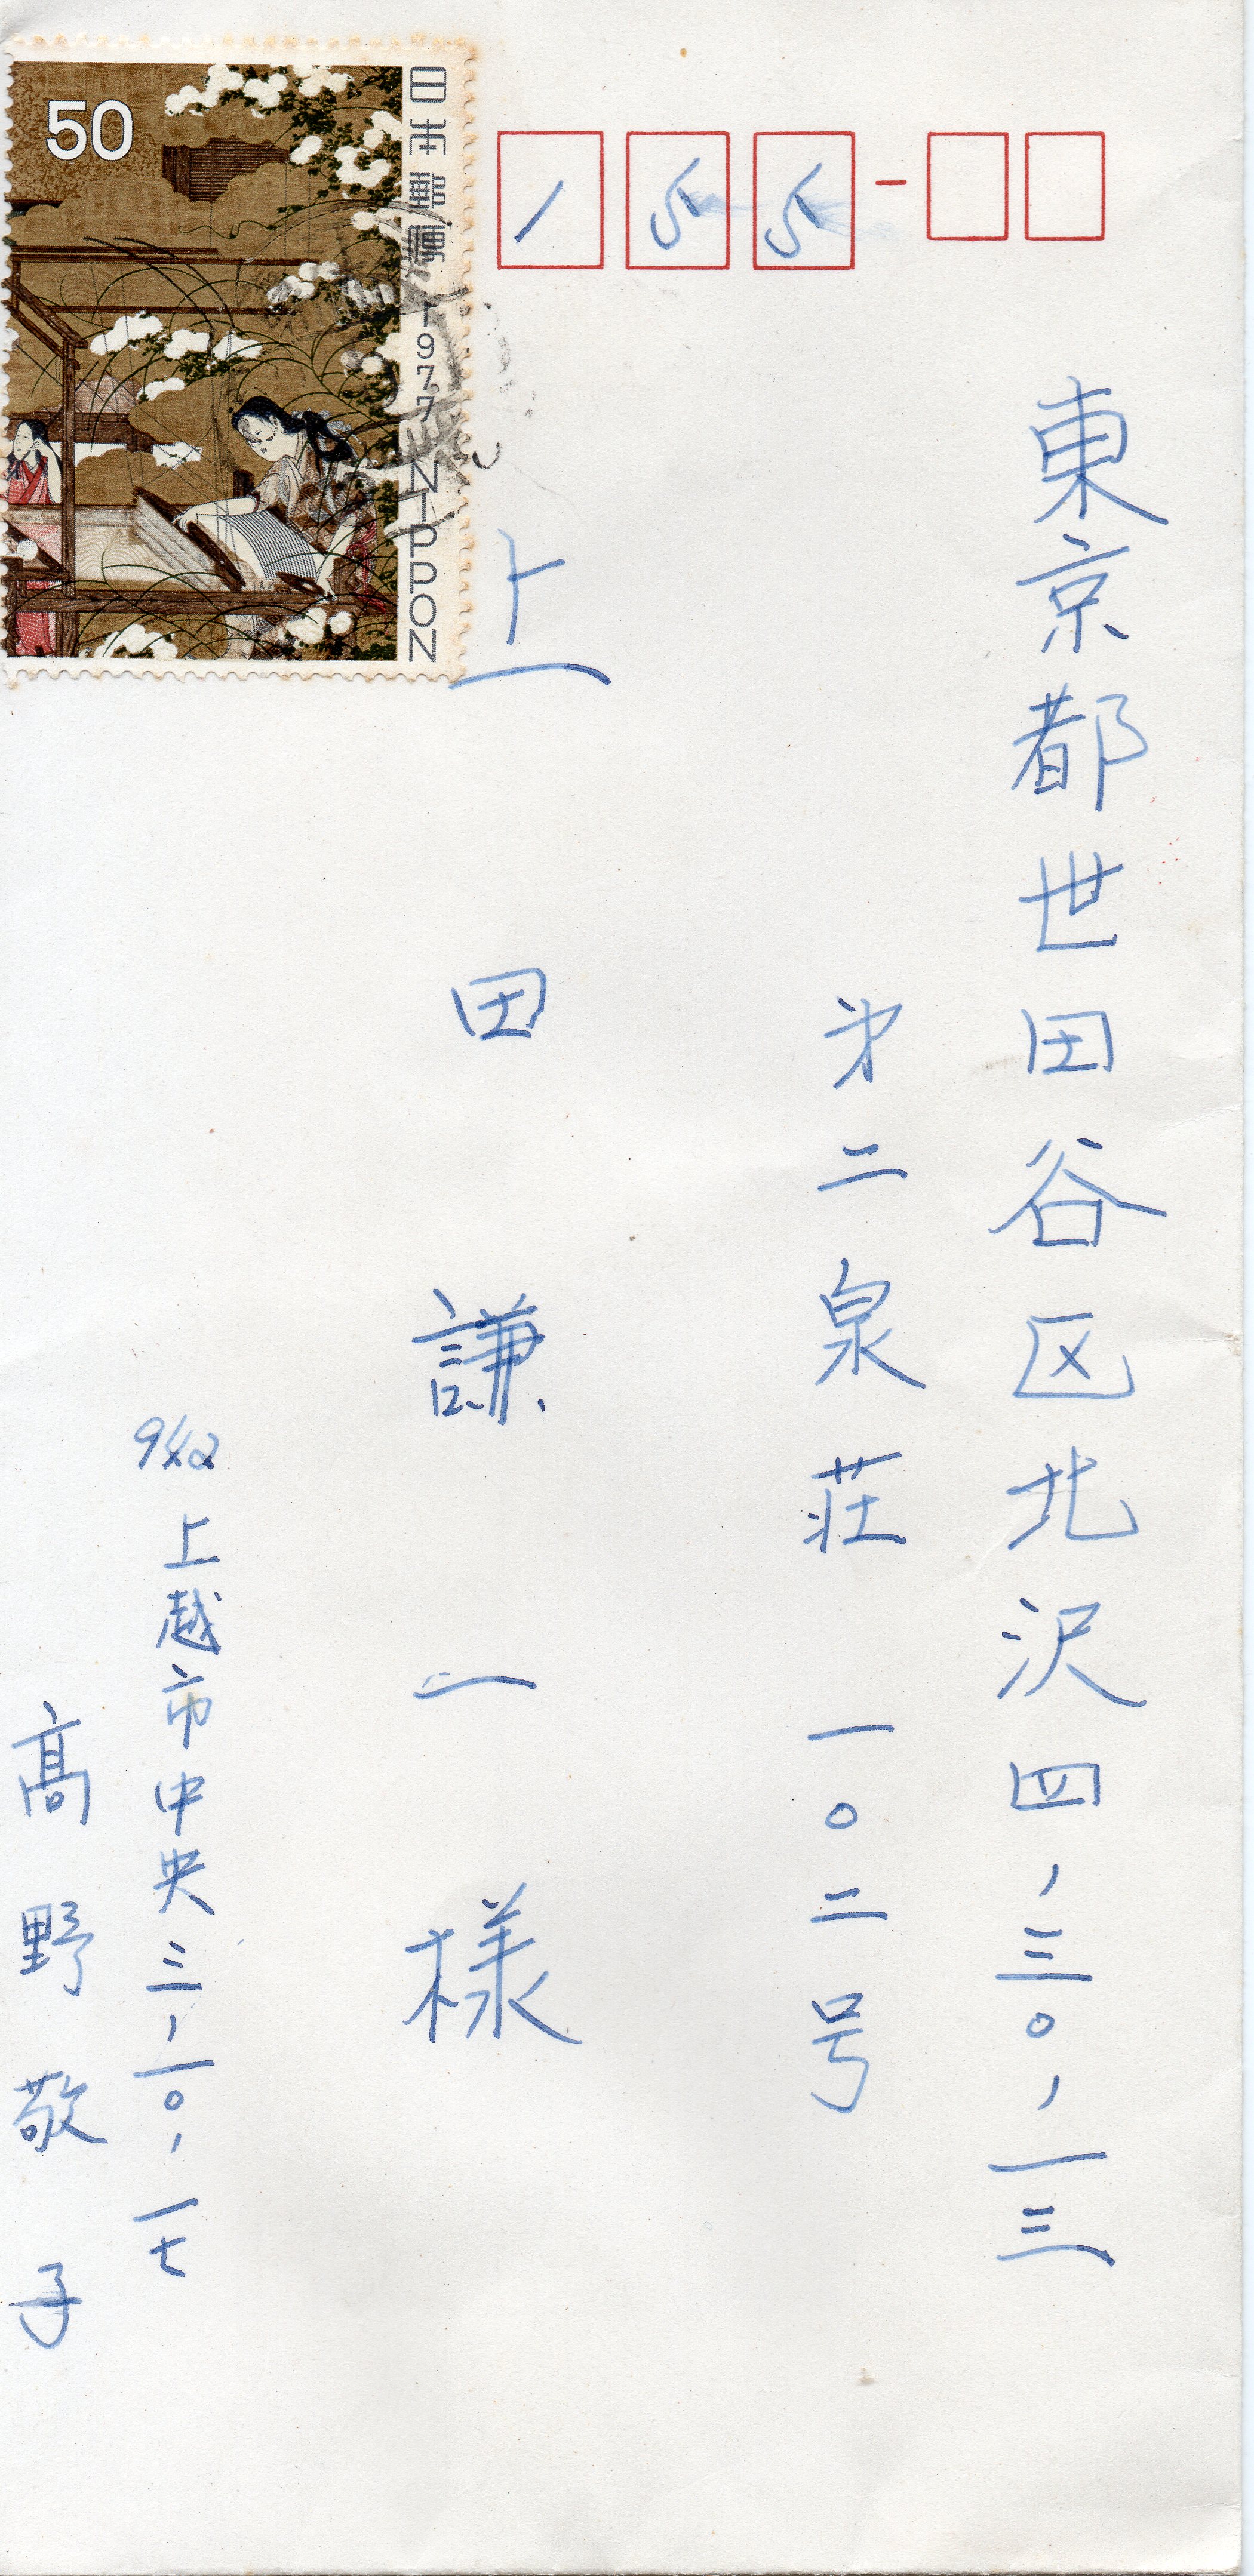 50
日本郵便 1977 NIPPON
155
東京都世田谷区北沢四、三〇、一三
第二泉荘 一〇二号
上田謙一様
942 上越市中央三、一〇、一七
高野敬子